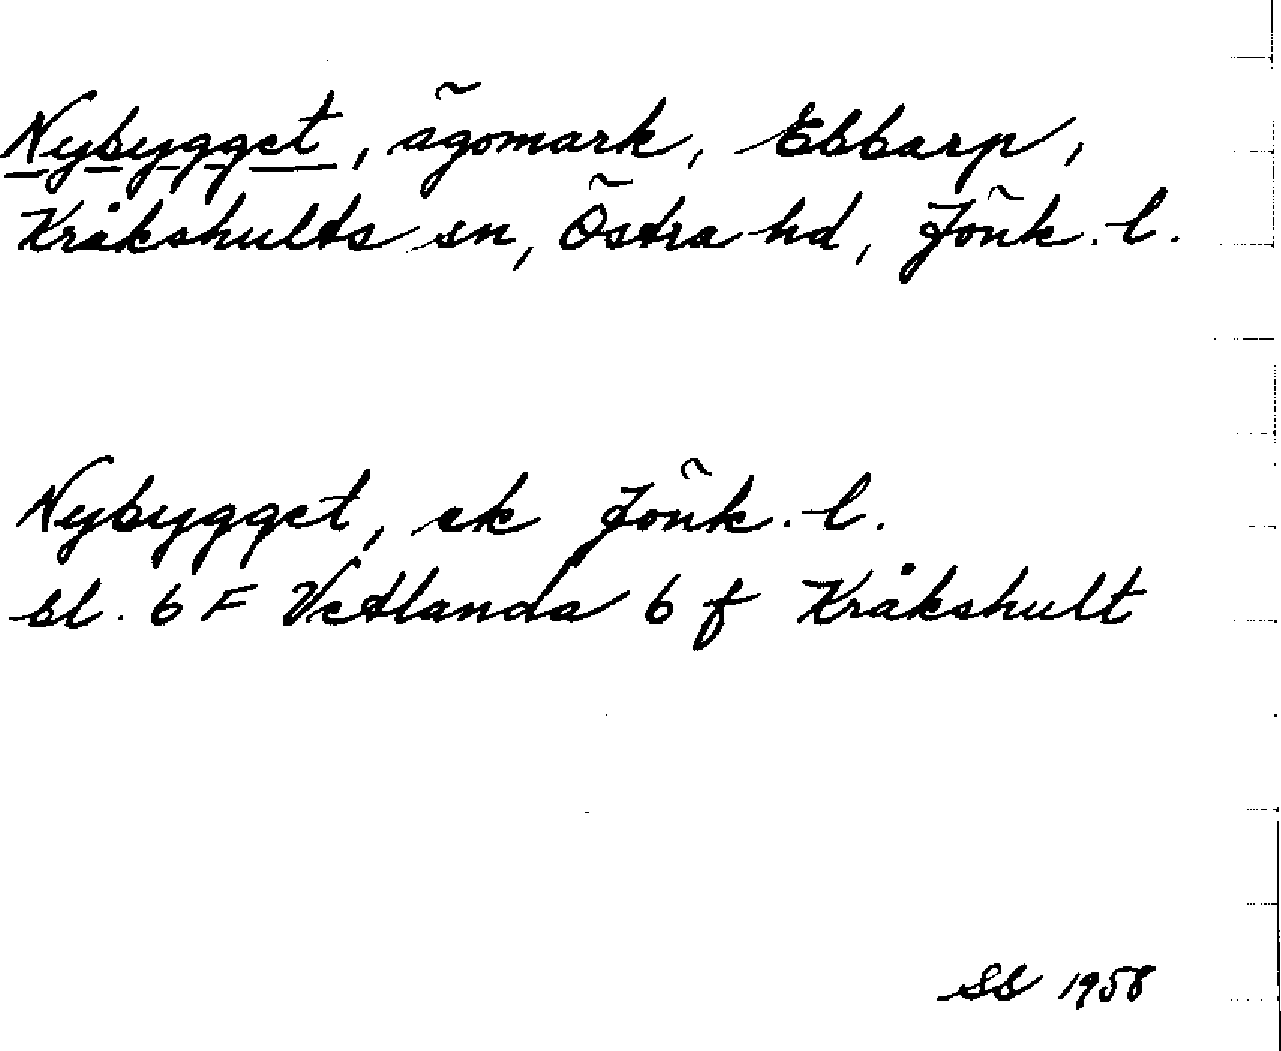 Nybygget, ägomark, Ebbarp,
Kråkshults sn, Östra hd, Jönk. l.
Nybygget, ek Jönk. l.
bl. 6 F Vetlanda 6 f Kråkshult
SB 1958